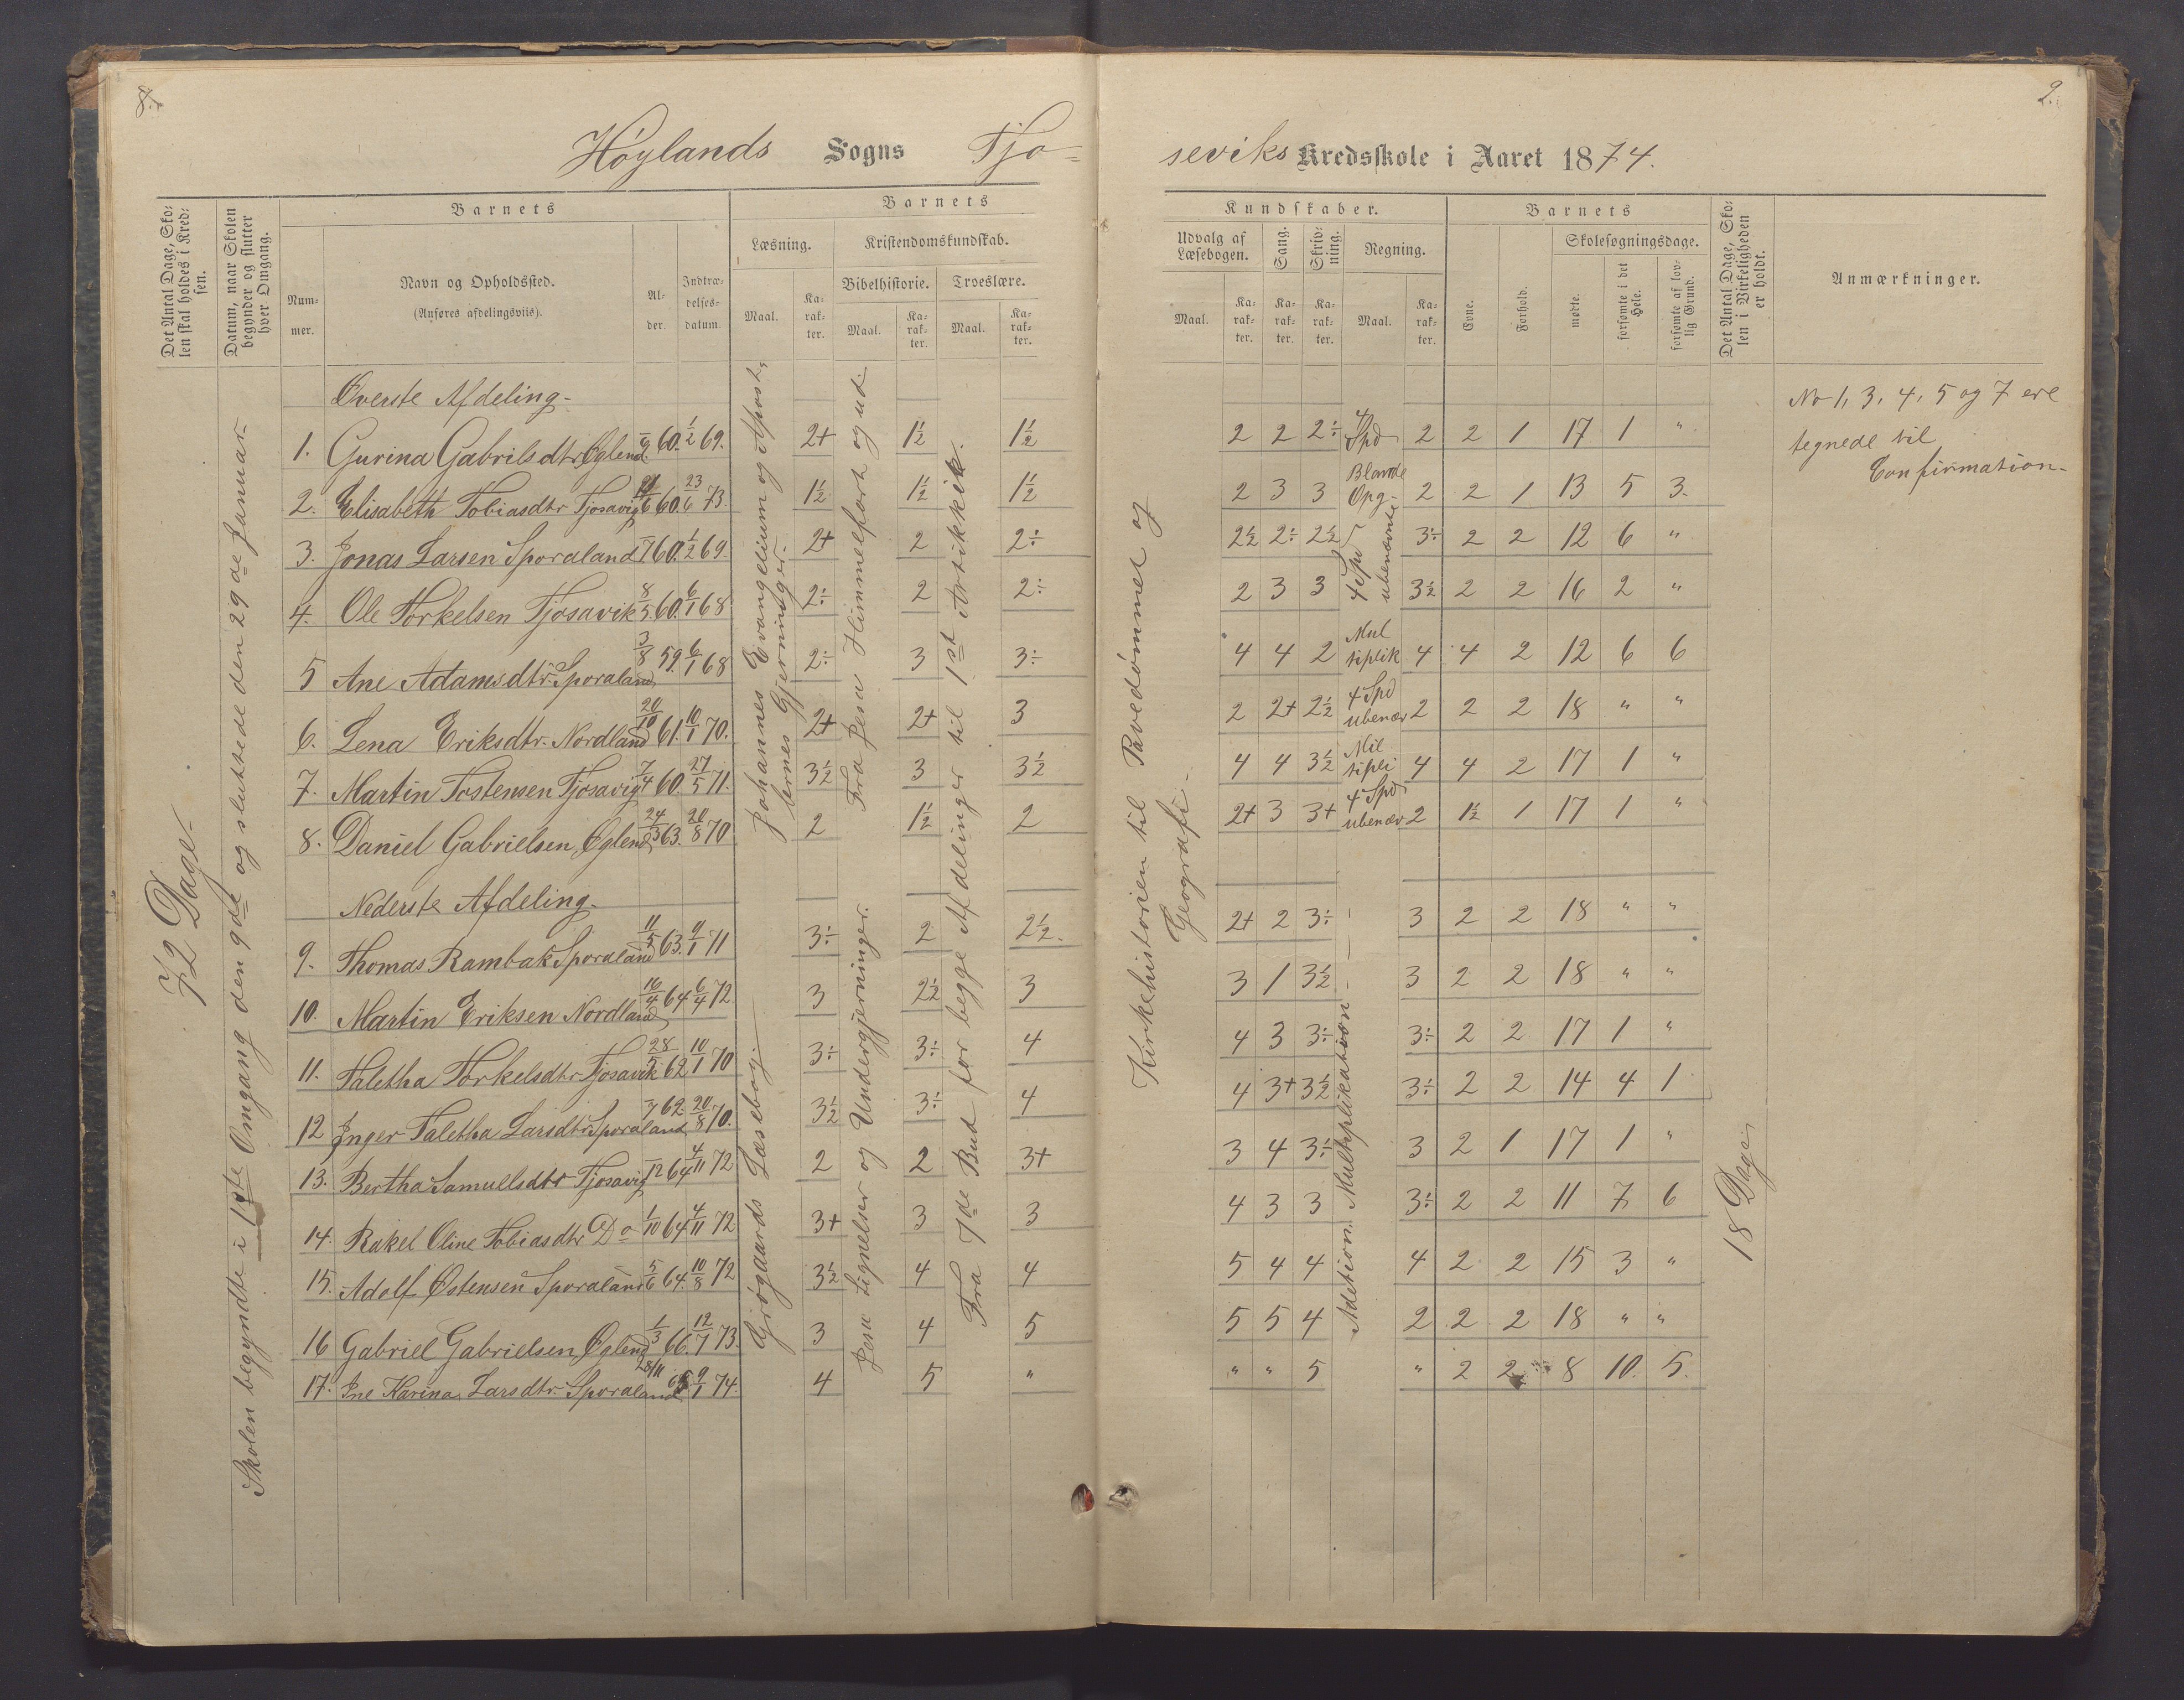 8.
2.
Høylands Sogns Tjo=
seviks Kredsskole i Aaret 1874.
Det Antal Dage, Sko-
len skal holdes i Kred-
sen.
Datum, naar Skolen
begynder og slutter
hver Omgang.
Barnets
Num-
mer.
Navn og Opholdssted.
(Anføres afdelingsviis).
Al-
der.
Indtræ-
delses-
datum.
Barnets
Læsning.
Maal.
Ka-
rak-
ter.
Kristendomskundskab.
Bibelhistorie.
Maal.
Ka-
rak-
ter.
Troeslære.
Maal.
Ka-
rak-
ter.
Kundskaber.
Udvalg af
Læsebogen.
Maal.
Ka-
rak-
ter.
Sang.
Ka-
rak-
ter.
Skriv-
ning.
Ka-
rak-
ter.
Regning.
Maal.
Ka-
rak-
ter.
Barnets
Evne.
Forhold.
Skolesøgningsdage.
mødte.
forsømte i det
Hele.
forsømte af lov-
lig Grund.
Det Antal Dage, Sko-
len i Virkeligheden
er holdt.
Anmærkninger.
72 Dage-
Skolen begyndte i 1ste Omgang den 9de og sluttede den 29de Januar-
Johannes Evangelium og Apost-
lernes Gjerninger.
Fra Jesu Himmelfart og ud
Fra 7de Bud for begge Afdelinger til 1st Artikkik.
Kirkehistorien til Pavedømmet og
Geografi-
Øverste Afdeling-
1. Gurina Gabrilsdtr Øglend 60. 1/2 69. 2+ 1½ 1½ 2 2 2÷ 4 Spd 2 2 1 17 1 "
2. Elisabeth Tobiasdtr Tjosavig 60. 23/6 73. 1½ 1½ 1½ 2 3 3 Blande Opg- 2 2 1 13 5 3.
3. Jonas Larsen Sporaland 7 60. 1/2 69. 2+ 2 2÷ 2½ 2÷ 2½ 3÷ 2 2 12 6 "
4 Spd ubenævnte
4. Ole Torkelsen Tjosavik 8/5 60. 6/1 68 2÷ 2 2÷ 2 3 3 3½ 2 2 16 2 "
5 Ane Adamsdtr. Sporaland 3/8 59. 6/1 68 2÷ 3 3÷ 4 4 2 Mul tiplik 4 4 2 12 6 6
6. Lena Eriksdtr. Nordland 20/10 61. 10/1 70. 2+ 2+ 3 2 2+ 2½ 4 Spd ubenæv 2 2 2 18 " "
7. Martin Tostensen Tjosavig 7/4 60. 27/5 71. 3½ 3 3½ 4 4 3½ Mil tipli 4 4 2 17 1 "
8. Daniel Gabrielsen Øglend 24/3 63. 20/8 70 2 1½ 2 2+ 3 3+ 4 Spd ubenæv 2 1½ 1 17 1 "
Nederste Afdeling-
Grøgaards Læsebog-
Jesu Lignelser og Undergjerninger.
Adition. Multiplikation-
9. Thomas Rambak Sporaland 11/5 63. 9/1 71 3÷ 2 2½. 2+ 2 3÷ 3 2 2 18 " "
10. Martin Eriksen Nordland 16/4 64 6/4 72 3 2½ 3 3 1 3½ 3 2 2 18 " "
11. Taletha Torkelsdtr Tjosavik 28/5 62 10/1 70 3÷ 3÷ 4 4 3 3÷ 3÷ 2 2 17 1 "
12 Inger Taletha Larsdtr Sporaland 7 62. 20/8 70. 3½ 3÷ 4 4 3+ 3½ 3÷ 2 2 14 4 1
13. Bertha Samuelsdtr Tjosavig 12 64 4/11 72 2 2 3+ 3 4 3÷ 3 2 1 17 1 "
14. Rakel Oline Tobiasdtr Do 1/10 64 4/11 72 3+ 3 3 4 3 3 3÷ 2 2 11 7 6
15. Adolf Østensen Sporaland 5/6 64. 10/8 72 3½ 4 4 5 4 4 4 2 2 15 3 "
16 Gabriel Gabrielsen Øglend 1/3 66. 12/7 73. 3 4 5 5 5 4 2 2 2 18 " "
17. Ine Karina Larsdtr Sporaland 28/11 65 9/1 74. 4 5 " " " 5 " 2 2 8 10. 5.
18 Dage
No 1, 3, 4, 5 og 7 ere
tegnede til
Confirmation-